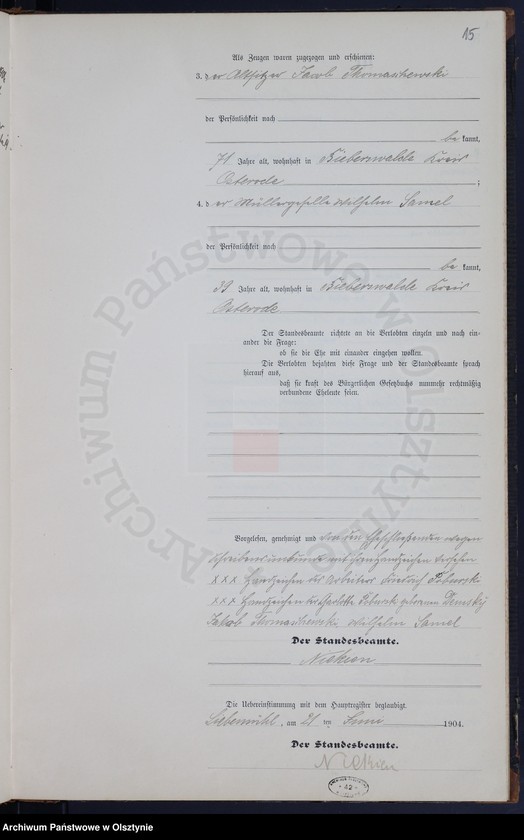 15
Als Zeugen waren zugezogen und erschienen:
3. der Altsitzer Jacob Thomaschewski
der Persönlichkeit nach
bekannt,
71 Jahre alt, wohnhaft in Bieberswalde Kreis
Osterode ;
4. der Müllergeselle Wilhelm Samel
der Persönlichkeit nach
bekannt,
39 Jahre alt, wohnhaft in Bieberswalde Kreis
Osterode
Der Standesbeamte richtete an die Verlobten einzeln und nach ein-
ander die Frage:
ob sie die Ehe mit einander eingehen wollen.
Die Verlobten bejahten diese Frage und der Standesbeamte sprach
hierauf aus,
daß sie kraft des Bürgerlichen Gesetzbuchs nunmehr rechtmäßig
verbundene Eheleute seien.
Vorgelesen, genehmigt und von den Eheschließenden wegen
Schreibensunkunde mit Handzeichen versehen
xxx Handzeichen des Arbeiters Friedrich
xxx Handzeichen der Charlotte geborene
Jakob Thomaschewski Wilhelm Samel
Der Standesbeamte.
Niekien
Die Uebereinstimmung mit dem Hauptregister beglaubigt.
Liebemühl, am 21 ten Juni 1904.
Der Standesbeamte.
Niekien
Archiwum Państwowe w Olsztynie
Archiwum Państwowe w Olsztynie